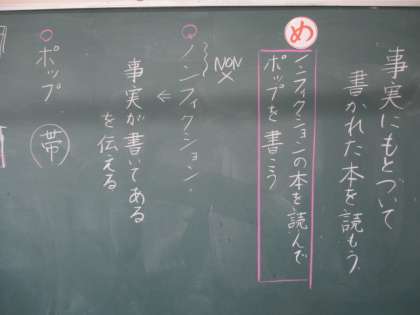 事実にもとづいて
書かれた本を読もう
め
ノンフィクションの本を読んで
ポップを書こう
NON
×
○ノンフィクション・
←
事実が書いてある
を伝える
○ポップ（帯）